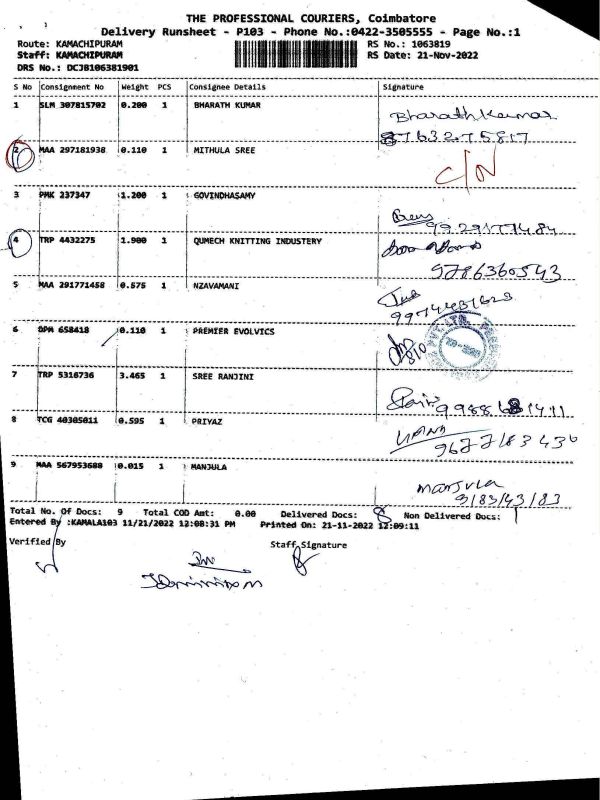 THE PROFESSIONAL COURIERS, Coimbatore
Delivery Runsheet - P103 - Phone No.:0422-3505555 - Page No.:1
Route: KAMACHIPURAM RS No.: 1063819
Staff: KAMACHIPURAM RS Date: 21-Nov-2022
DRS No.: DCJB106381901
S No Consignment No Weight PCS Consignee Details Signature
1 SLM 307815702 0.200 1 BHARATH KUMAR Bharath Kumar
8763275817
2 MAA 297181938 0.110 1 MITHULA SREE C/N
3 PMK 237347 1.200 1 GOVINDHASAMY
4 TRP 4432275 1.900 1 QUMECH KNITTING INDUSTERY
9786360543
5 MAA 291771458 0.575 1 NZAVAMANI
6 OPM 658418 0.110 1 PREMIER EVOLVICS
PVT. LTD.
7 TRP 5316736 3.465 1 SREE RANJINI
8 TCG 40305011 0.595 1 PRIYAZ
9 MAA 567953688 0.015 1 MANJULA
Manjula
9183143183
Total No. Of Docs: 9 Total COD Amt: 0.00 Delivered Docs: 8 Non Delivered Docs: 1
Entered By :KAMALA103 11/21/2022 12:08:31 PM Printed On: 21-11-2022 12:09:11
Verified By Staff Signature